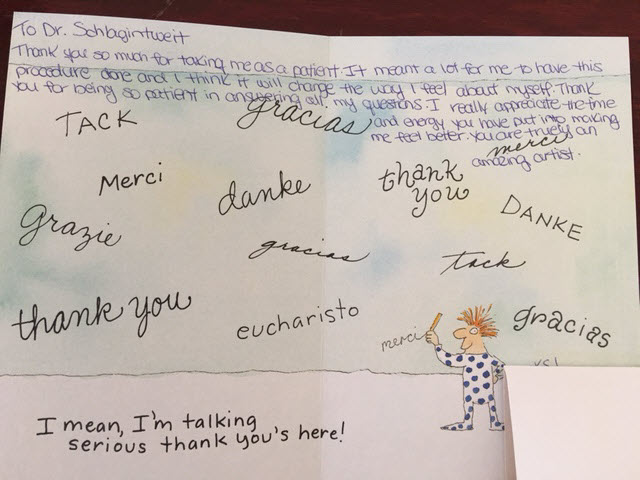 To Dr. Schlagintweit
Thank you so much for taking me as a patient. It meant a lot for me to have this
procedure done and I think it will change the way I feel about myself. Thank
you for being so patient in answering all my questions. I really appreciate the time
and energy you have put into making
me feel better. You are truely an
amazing artist.
gracias
TACK
merci
Merci
danke
thank
you
DANKE
grazie
gracias
tack
thank you
eucharisto
merci
gracias
I mean, I'm talking
serious thank you's here!